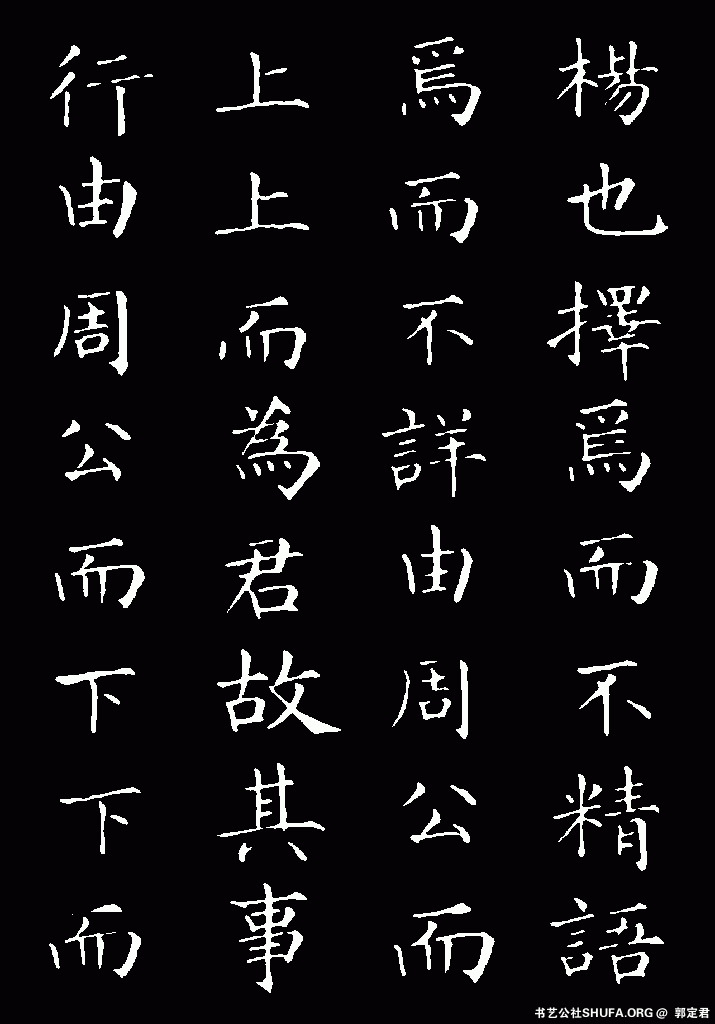 楊也擇焉而不精語
焉而不詳由周公而
上上而為君故其事
行由周公而下下而
书艺公社SHUFA.ORG @ 郭定君